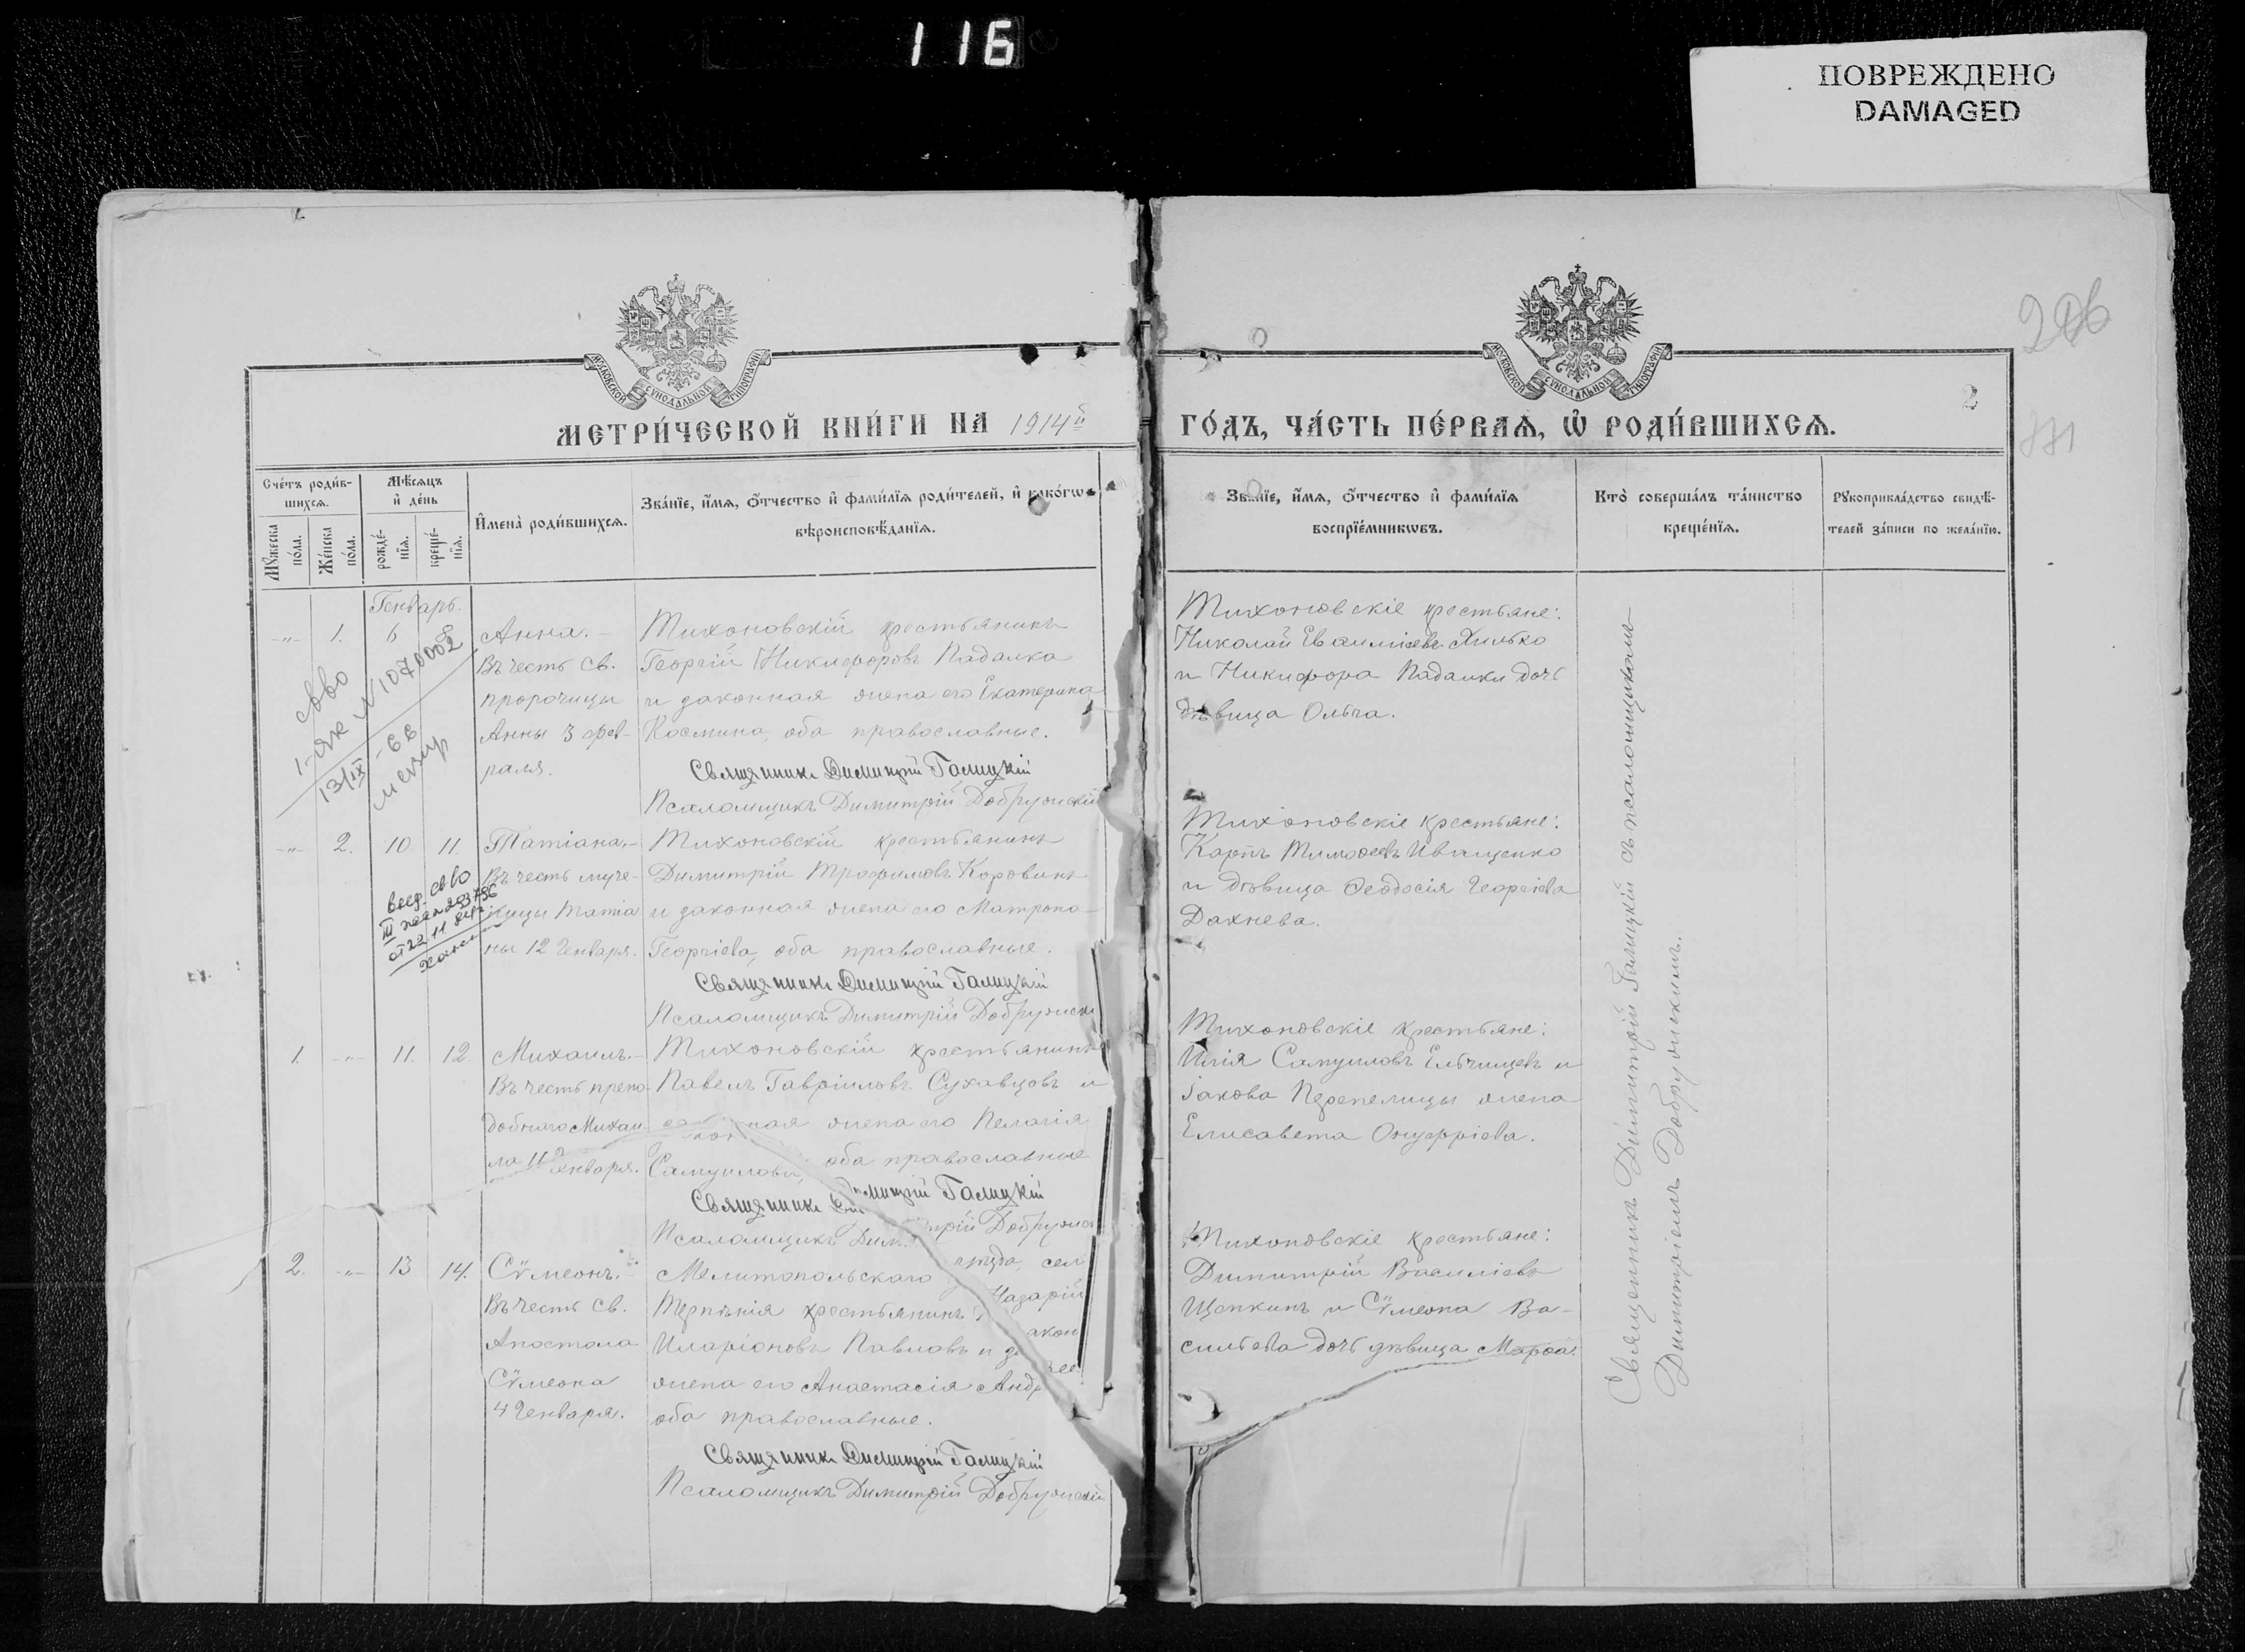 116
ПОВРЕЖДЕНО
DAMAGED
206
2
МОСКОВСКОЙ СУНОДАЛЬНОЙ ТИПОГРАФІИ
МОСКОВСКОЙ СУНОДАЛЬНОЙ ТИПОГРАФІИ
МЕТРИ́ЧЕСКОЙ КНИ́ГИ НА 1914й ГО́ДЪ, ЧА́СТЬ ПЕ́РВАѦ, Ѿ РОДИ́ВШИХСѦ.
Сче́тъ роди́в-
шихсѧ.
Мꙋжеска
по́ла.
Же́нска
по́ла.
Мѣ́сѧцъ
и҆ де́нь
рожде́-
нїѧ.
креще́-
нїѧ.
И҆мена̀ роди́вшихсѧ.
Зва́нїе, и҆́мѧ, ѻ҆́тчество и҆ фами́лїѧ роди́телей, и҆ како́гѡ
вѣроисповѣ́данїѧ.
Зва́нїе, и҆́мѧ, ѻ҆́тчество и҆ фами́лїѧ
воспрїе́мникѡвъ.
Кто̀ соверша́лъ та́инство
креще́нїѧ.
Рꙋкоприкла́дство свидѣ́-
телей за́писи по жела́нїю.
Генварь.
-„- 1. 6 8
Анна.-
Въ честь св.
пророчицы
Анны 3 фев-
раля.
Тихоновскій крестьянинъ
Георгій Никифоровъ Падалка
и законная жена его Екатерина
Космина, оба православные.
Священникъ Димитрій Галицкій
Псаломщикъ Димитрій Добружскій
Тихоновскіе крестьяне:
Николай Хилько
и Никифора Падалки дочь
дѣвица Ольга.
с-во
1-ЯК № 107000
13/IX -68
-„- 2. 10 11.
Татіана.-
Въ честь муче-
ницы Татіа
ны 12 Генваря.
Тихоновскій крестьянинъ
Димитрій Трофимовъ Коровинъ
и законная жена его Матрона
Георгіева, оба православные.
Священникъ Димитрій Галицкій
Псаломщикъ Димитрій Добружскі
Тихоновскіе крестьяне:
Карпъ Тимоѳеевъ Иващенко
и дѣвица Ѳеодосія Георгіева
Дахнева.
выд. св-во
1. -„- 11. 12.
Михаилъ.-
Въ честь препо
добнаго Михаи
ла 11 Генваря.
Тихоновскій крестьянинъ
Павелъ Гавріиловъ Сухавцовъ и
законная жена его Пелагія
Самуилова, оба православные
Священникъ Димитрій Галицкій
Псаломщикъ Димитрій Добружск
Тихоновскіе крестьяне:
Илія Самуиловъ Ельчищевъ и
Іакова Перепелицы жена
Елисавета Онуфріева.
2. -„- 13 14.
Сѵмеонъ.-
Въ честь св.
Апостола
Сѵмеона
4 Генваря.
Мелитопольскаго уѣзда, сел
Терпѣнія крестьянинъ Назарій
Иларіоновъ Павловъ и закон
жена его Анастасія Андрее
оба православные.
Священникъ Димитрій Галицкій
Псаломщикъ Димитрій Добружскій
Тихоновскіе крестьяне:
Димитрій Василіевъ
Щепкинъ и Сѵмеона Ва-
сильева дочь дѣвица Марѳа.
Священникъ Димитрій Галицкій съ псаломщикомъ
Димитріемъ Добружскимъ.